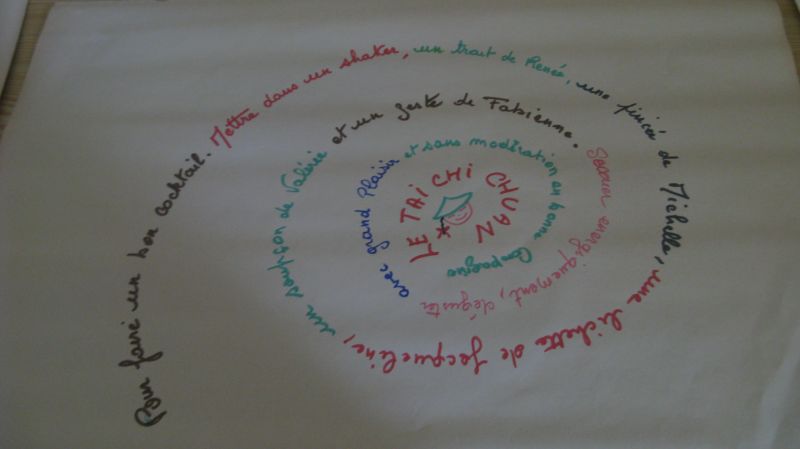 Pour faire un bon cocktail. Mettre dans un shaker, un trait de Renée, une pincée de Michelle, une lichette de Jacqueline, un soupçon de Valérie et un zeste de Fabienne. Secouer energiquement, déguster avec grand Plaisir et sans modération en bonne Compagnie
LE TAI CHI CHUAN